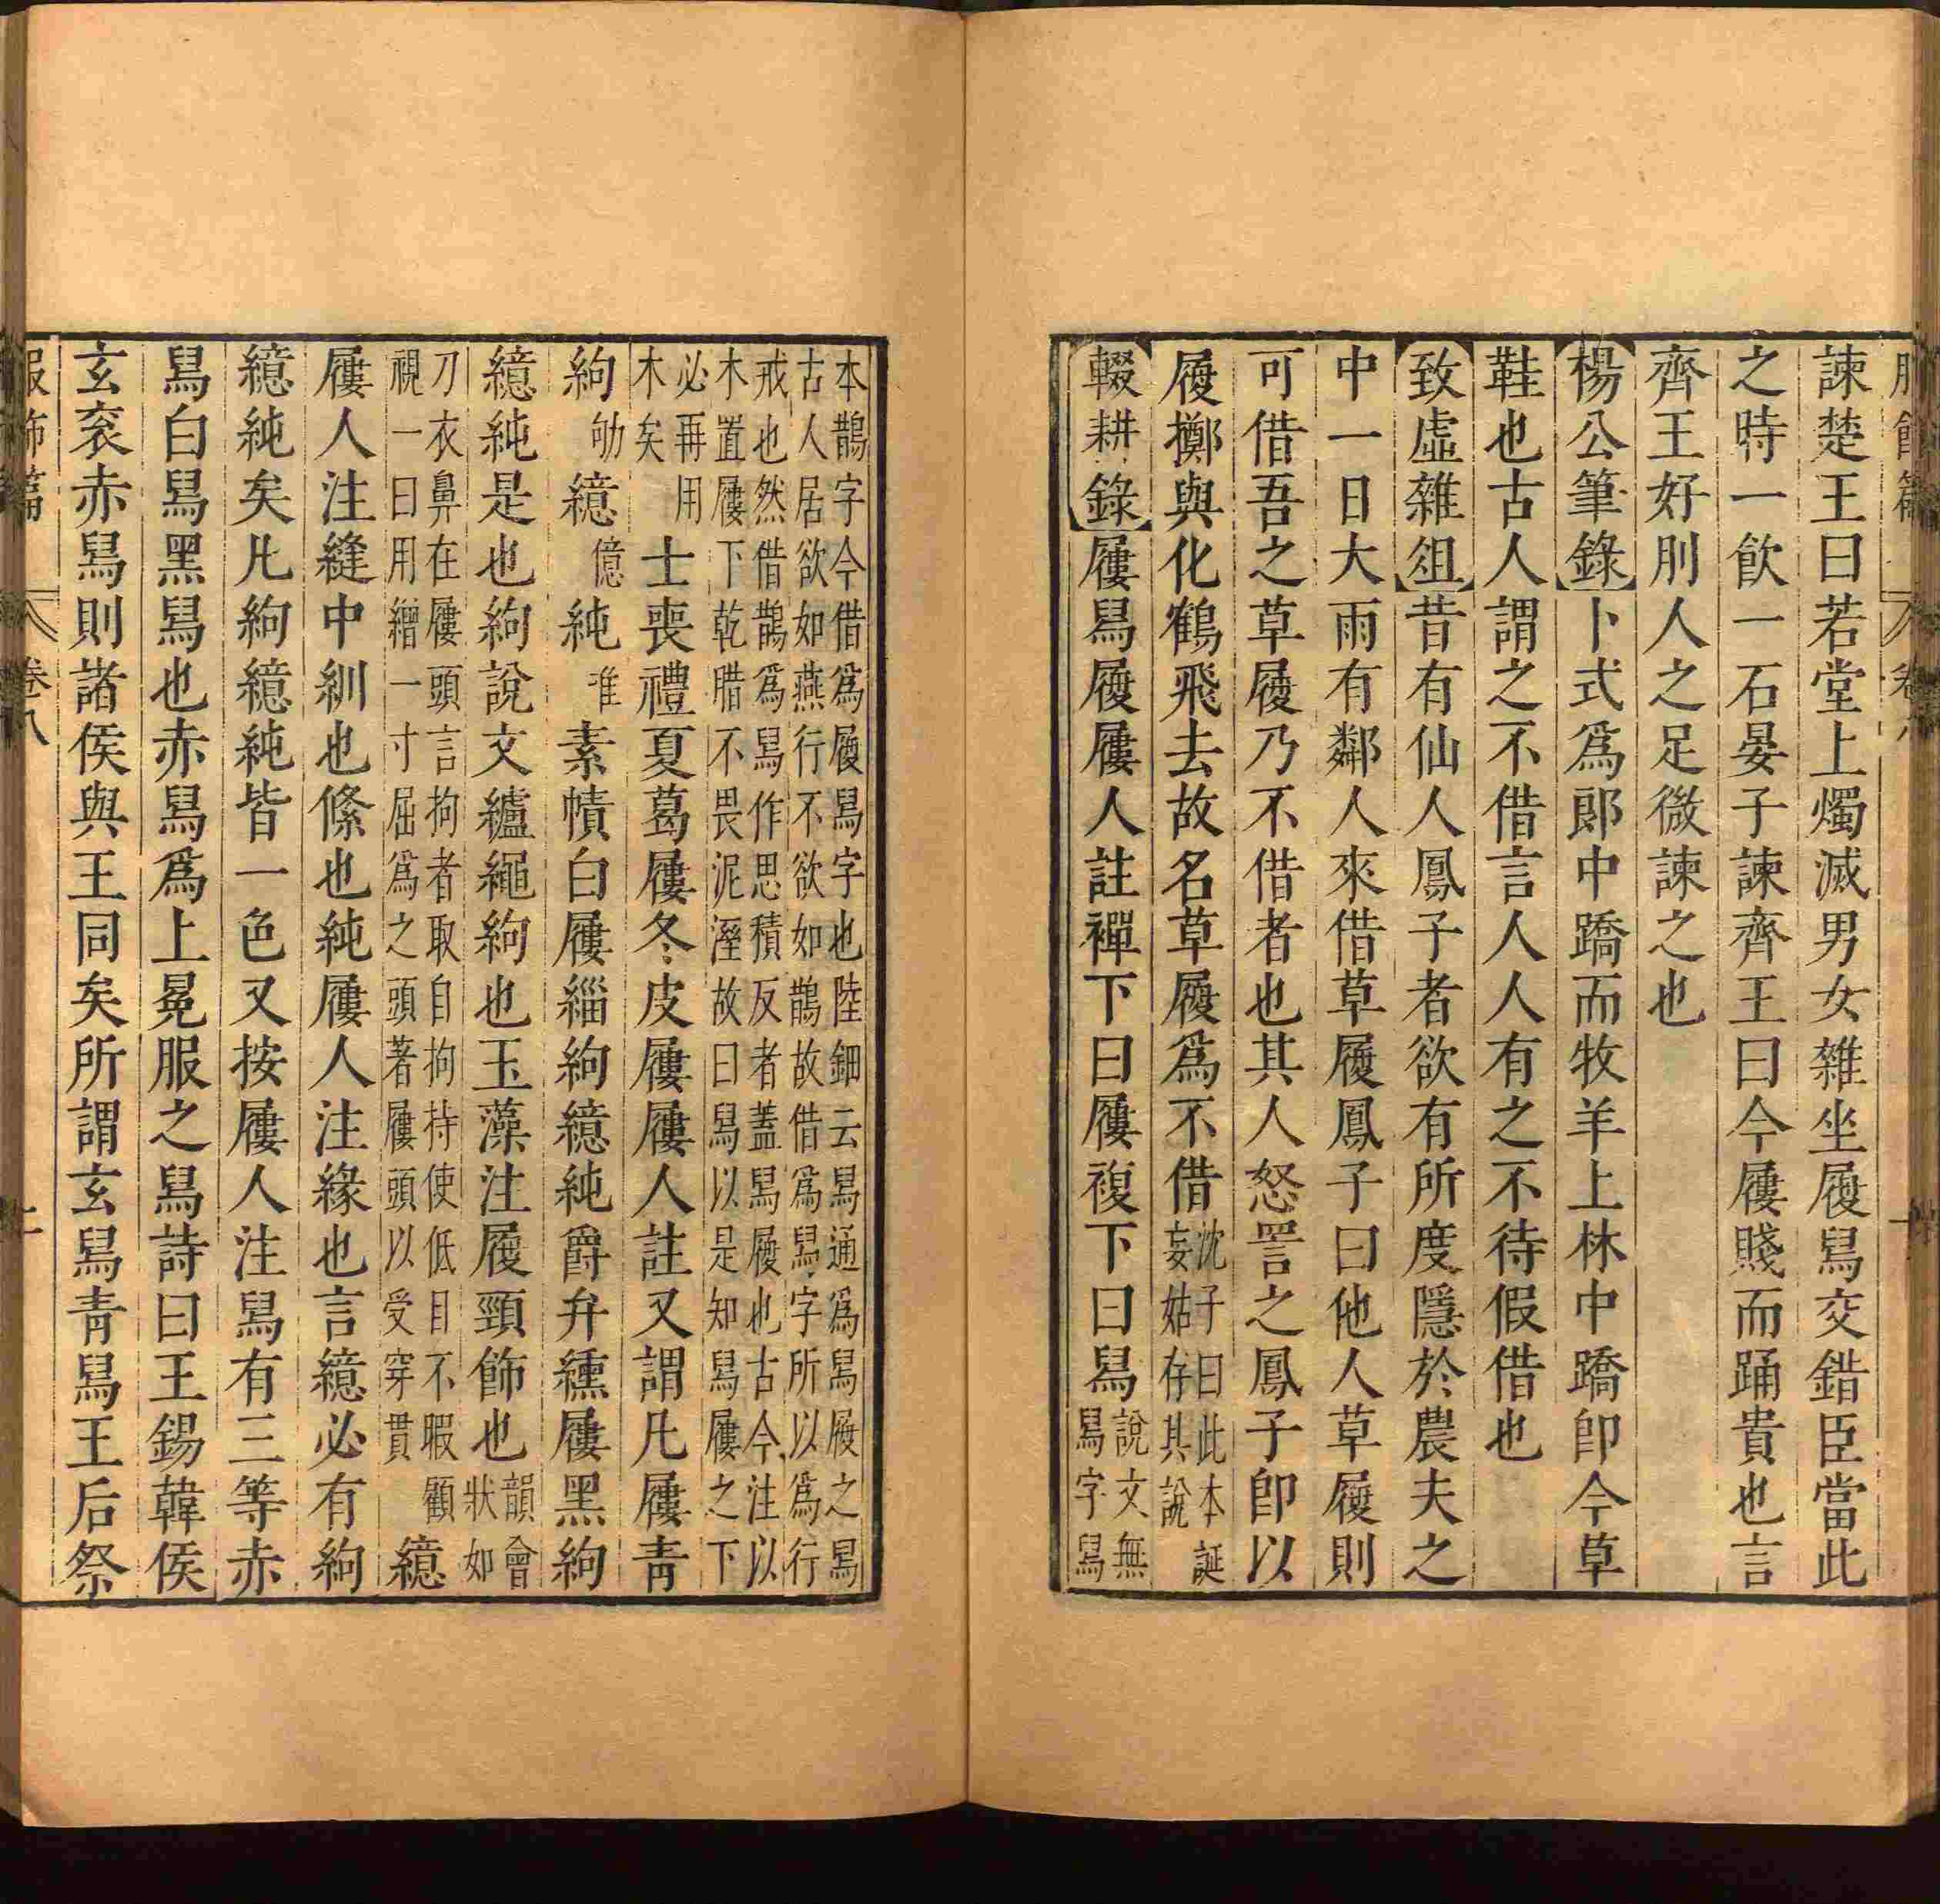 服飾篇 卷八
諫楚王曰若堂上燭滅男女雜坐履舄交錯臣當此
之時一飲一石晏子諫齊王曰今屨賤而踊貴也言
齊王好刖人之足微諫之也
楊公筆錄卜式爲郎中蹻而牧羊上林中蹻卽今草
鞋也古人謂之不借言人人有之不待假借也
致虛雜俎昔有仙人鳳子者欲有所度隱於農夫之
中一日大雨有鄰人來借草履鳳子曰他人草履則
可借吾之草履乃不借者也其人怒詈之鳳子卽以
履擲與化鶴飛去故名草履爲不借沈子曰此本誕妄姑存其說
輟耕錄屨舄履屨人註襌下曰屨複下曰舄說文無舄字舄
本鵲字今借爲履舄字也陸鈿云舄通爲舄履之舄
古人居欲如燕行不欲如鵲故借爲舄字所以爲行
戒也然借鵲爲舄作思積反者蓋舄履也古今注以
木置屨下乾腊不畏泥溼故曰舄以是知舄屨之下
必再用木矣士喪禮夏葛屨冬皮屨屨人註又謂凡屨靑
絇劬繶億純准素幘白屨緇絇繶純爵弁纁屨黑絇
繶純是也絇說文纑繩絇也玉藻注履頸飾也韻會狀如
刀衣鼻在屨頭言拘者取自拘持使低目不暇顧
視一曰用繒一寸屈爲之頭著屨頭以受穿貫繶
屨人注縫中紃也絛也純屨人注緣也言繶必有絇
繶純矣凡絇繶純皆一色又按屨人注舄有三等赤
舄白舄黑舄也赤舄爲上冕服之舄詩曰王錫韓侯
玄袞赤舄則諸侯與王同矣所謂玄舄靑舄王后祭
服飾篇 卷八